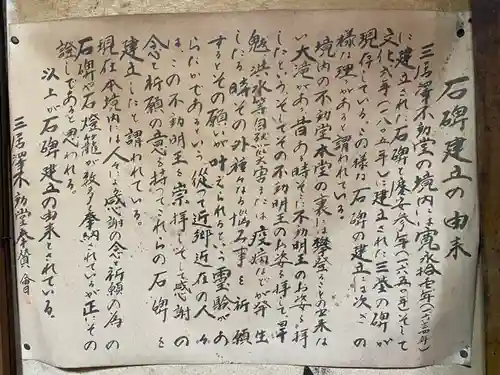 石碑建立の由来
三居沢不動堂の境内には寛永拾壱年(一六三四年)
に建立された石碑と慶安参年(一六五〇年)そして
文化弐年(一八〇五年)に建立された三基の碑が
現存している。この様な石碑の建立は次ぎの
様な理がある、と謂われている。
境内の不動堂本堂の裏には
い大滝があり昔ある時そこに不動明王のお姿を拝
したという。そしてその不動明王のお姿を拝して旱
魃、洪水等自然災害または疫病などが発生
したる時その外種々なる悩み事を祈願
するとその願いが叶えられるという霊験あ
らたかであるという。従って近郷近在の人々
は、この不動明王を崇拝しそして感謝の
念と祈願の意を持ってこれらの石碑を
建立したと謂われている。
現在本境内には人による感謝の念と祈願の為の
石碑や石燈籠が数多く奉納されているが正にその
証しであると思われる。
以上が石碑建立の由来とされている。
三居沢不動堂奉賛會